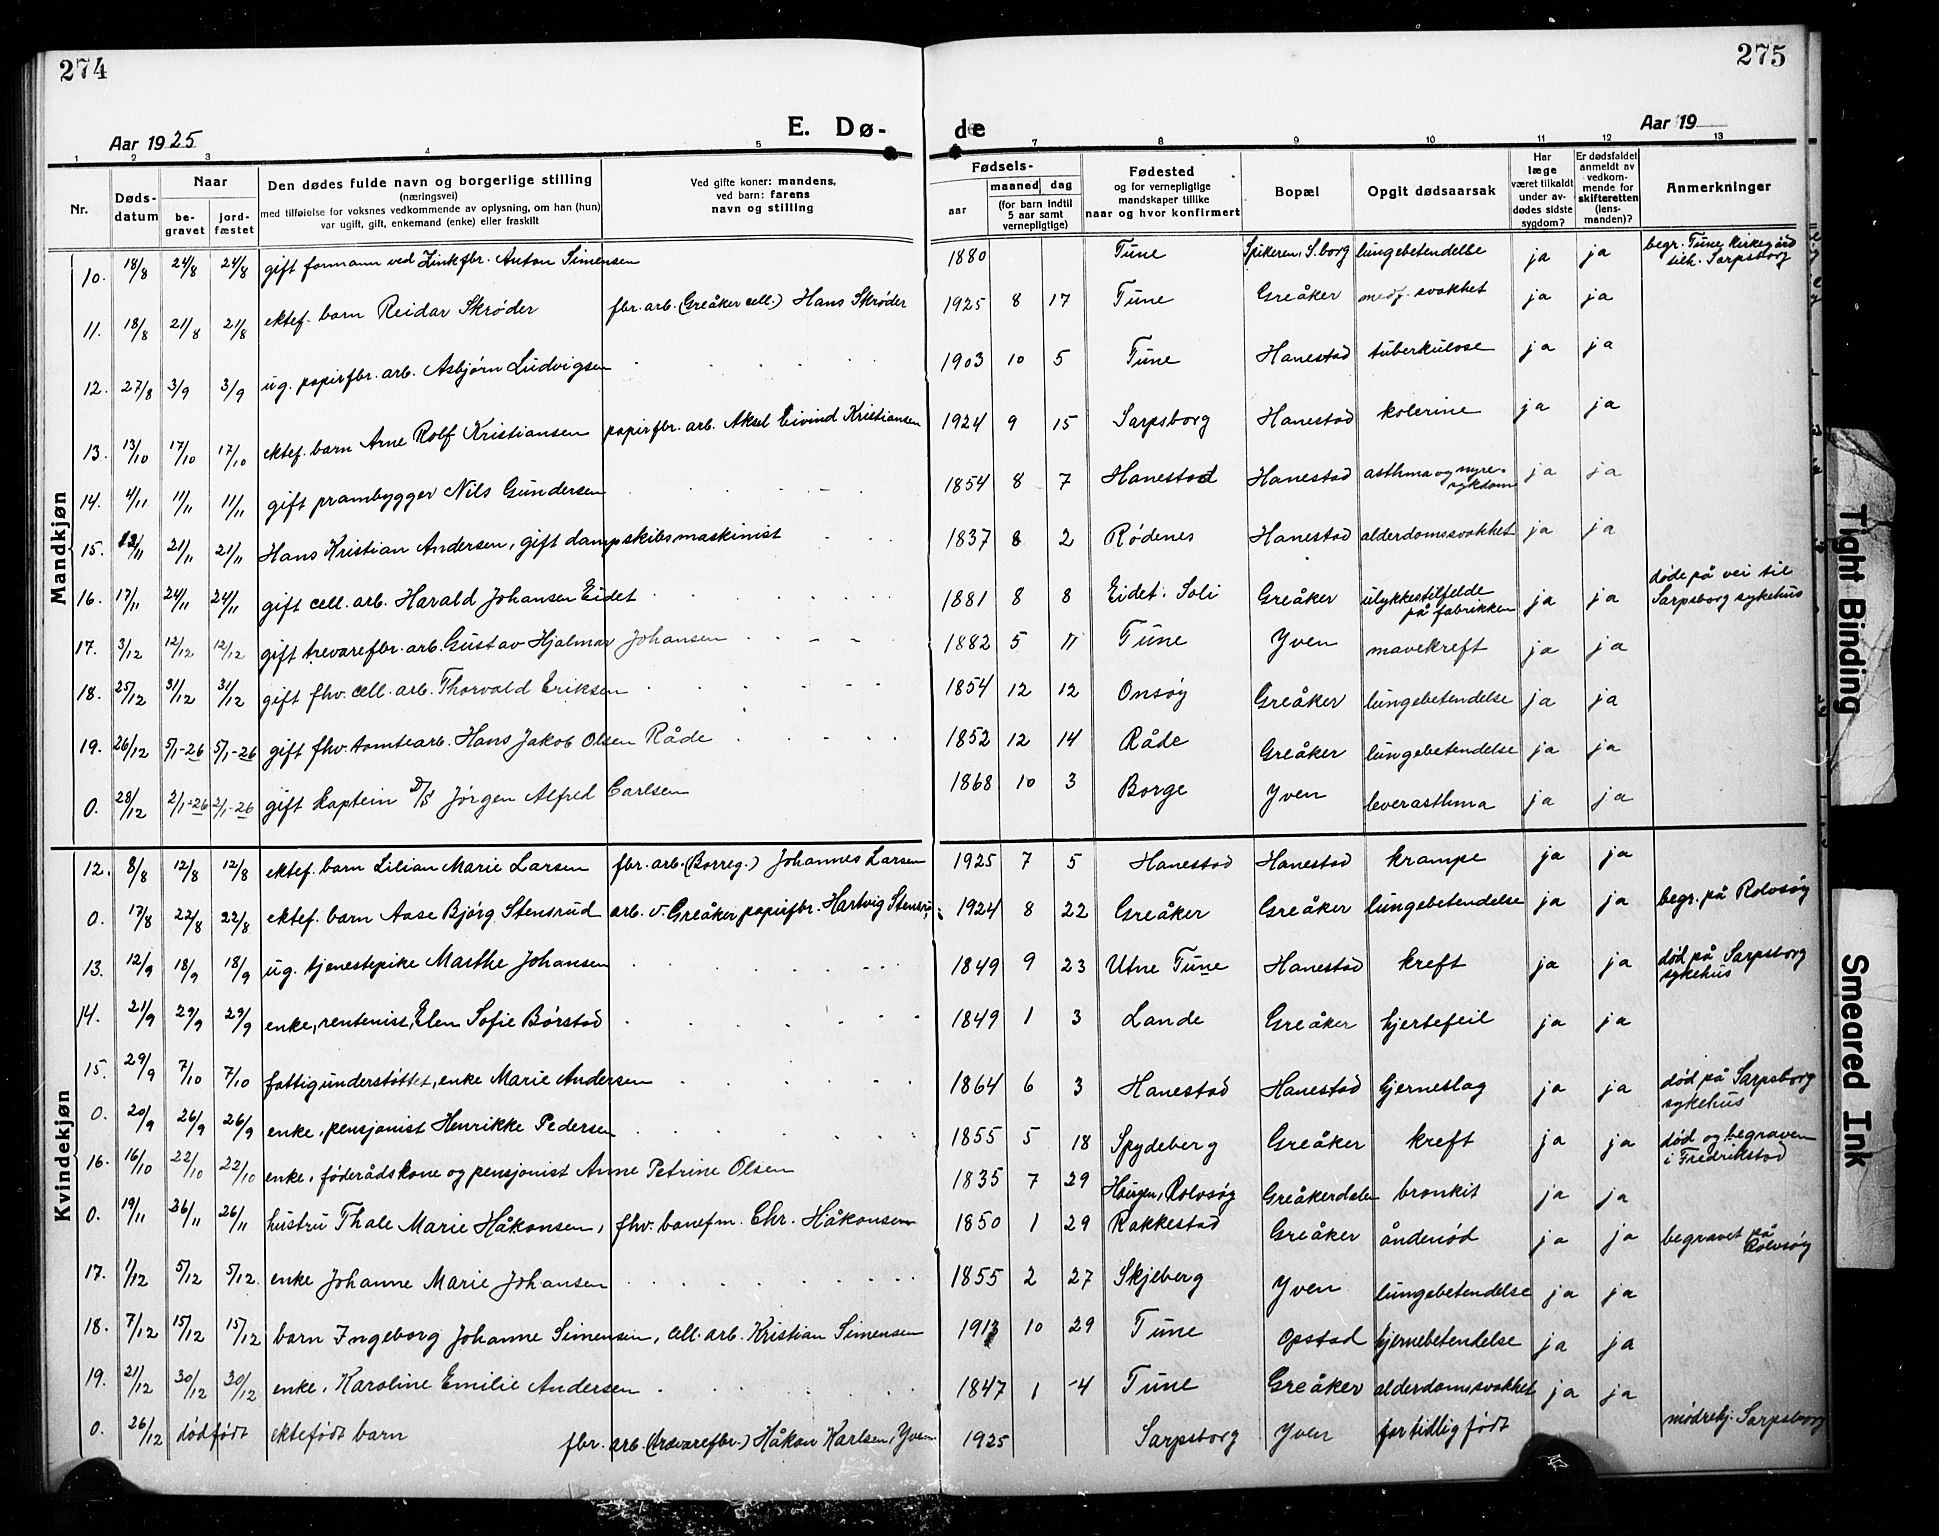 274
275
Aar 1925
E. Dø-
de
Aar 19
1 2 3 4 5 7 8 9 10 11 12 13
Nr.
Døds-
datum
Naar
be-
gravet
jord-
fæstet
Den dødes fulde navn og borgerlige stilling
(næringsvei)
med tilføielse for voksnes vedkommende av oplysning, om han (hun)
var ugift, gift, enkemand (enke) eller fraskilt
Ved gifte koner: mandens,
ved barn: farens
navn og stilling
Fødsels-
aar
maaned
dag
(for barn indtil
5 aar samt
vernepligtige)
Fødested
og for vernepligtige
mandskaper tillike
naar og hvor konfirmert
Bopæl
Opgit dødsaarsak
Har
læge
været tilkaldt
under av-
dødes sidste
sygdom?
Er dødsfaldet
anmeldt av
vedkom-
mende for
skifteretten
(lens-
manden)?
Anmerkninger
Mandkjøn
10. 18/8 24/8 24/8 gift formann ved Zinkfbr. Anton Simensen 1880 Tune Spikeren, S.borg lungebetendelse ja ja begr. Tune kirkegård
tilh. Sarpsborg
11. 18/8 21/8 21/8 ektef. barn Reidar Skrøder fbr. arb. (Greåker cell.) Hans Skrøder 1925 8 17 Tune Greåker medf. svakhet ja ja
12. 27/8 3/9 3/9 ug. papirfbr. arb. Asbjørn Ludvigsen 1903 10 5 Tune Hanestad tuberkulose ja ja
13. 13/10 17/10 17/10 ektef. barn Arne Rolf Kristiansen papirfbr. arb. Aksel Eivind Kristiansen 1924 9 15 Sarpsborg Hanestad kolerine ja ja
14. 4/11 11/11 11/11 gift prambygger Nils Gundersen 1854 8 7 Hanestad Hanestad asthma og nyre-
sykdom ja ja
15. 12/11 21/11 21/11 Hans Kristian Andersen, gift dampskibsmaskinist 1837 8 2 Rødenes Hanestad alderdomssvakhet ja ja
16. 17/11 24/11 24/11 gift cell. arb. Harald Johansen Eidet 1881 8 8 Eidet. Soli Greåker ulykkestilfelde
på fabrikken ja ja døde på vei til
Sarpsborg sykehus
17. 3/12 12/12 12/12 gift trevarefbr. arb. Gustav Hjalmar Johansen 1882 5 11 Tune Yven mavekreft ja ja
18. 25/12 31/12 31/12 gift fhv. cell. arb. Thorvald Eriksen 1854 12 12 Onsøy Greåker lungebetendelse ja ja
19. 26/12 5/1-26 5/1-26 gift fhv. tomtearb. Hans Jakob Olsen Råde 1852 12 14 Råde Greåker lungebetendelse ja ja
0. 28/12 2/1-26 2/1-26 gift kaptein D/S Jørgen Alfred Carlsen 1868 10 3 Borge Yven leverasthma ja ja
Kvindekjøn
12. 8/8 12/8 12/8 ektef. barn Lilian Marie Larsen fbr. arb. (Borreg.) Johannes Larsen 1925 7 5 Hanestad Hanestad krampe ja ja
0. 17/8 22/8 22/8 ektef. barn Aase Bjørg Stensrud arb. v. Greåker papirfbr. Hartvig Stensru: 1924 8 22 Greåker Greåker lungebetendelse ja ja begr. på Rolvsøy
13. 12/9 18/9 18/9 ug. tjenestepike Marthe Johansen 1849 9 23 Utne Tune Hanestad kreft ja ja død på Sarpsborg
sykehus
14. 21/9 29/9 29/9 enke, rentenist, Elen Sofie Børstad 1849 1 3 Lande Greåker hjertefeil ja ja
15. 29/9 7/10 7/10 fattigunderstøttet, enke Marie Andersen 1864 6 3 Hanestad Hanestad hjerneslag ja ja død på Sarpsborg
sykehus
0. 20/9 26/9 26/9 enke, pensjonist Henrikke Pedersen 1855 5 18 Spydeberg Greåker kreft ja ja død og begraven
i Fredrikstad
16. 16/10 22/10 22/10 enke, føderådskone og pensjonist Anne Petrine Olsen 1835 7 29 Haugen, Rolvsøy Greåkerdalen bronkit ja ja
0. 19/11 26/11 26/11 hustru Thale Marie Håkonsen, fhv. banefm. Chr. Håkonsen 1850 1 29 Rakkestad Greåker åndenød ja ja begravet på
Rolvsøy
17. 1/12 5/12 5/12 enke Johanne Marie Johansen 1855 2 27 Skjeberg Yven lungebetendelse ja ja
18. 7/12 15/12 15/12 barn Ingeborg Johanne Simensen, cell. arb. Kristian Simensen 1913 10 29 Tune Opstad hjernebetendelse ja ja
19. 21/12 30/12 30/12 enke, Karoline Emilie Andersen 1847 1 4 Tune Greåker alderdomssvakhet ja ja
0. 26/12 dødfødt ektefødt barn fbr. arb. (trævarefbr.) Håkon Karlsen, Yven 1925 Sarpsborg Yven for tidlig født mødrehj. Sarpsborg
Tight Binding
Smeared Ink